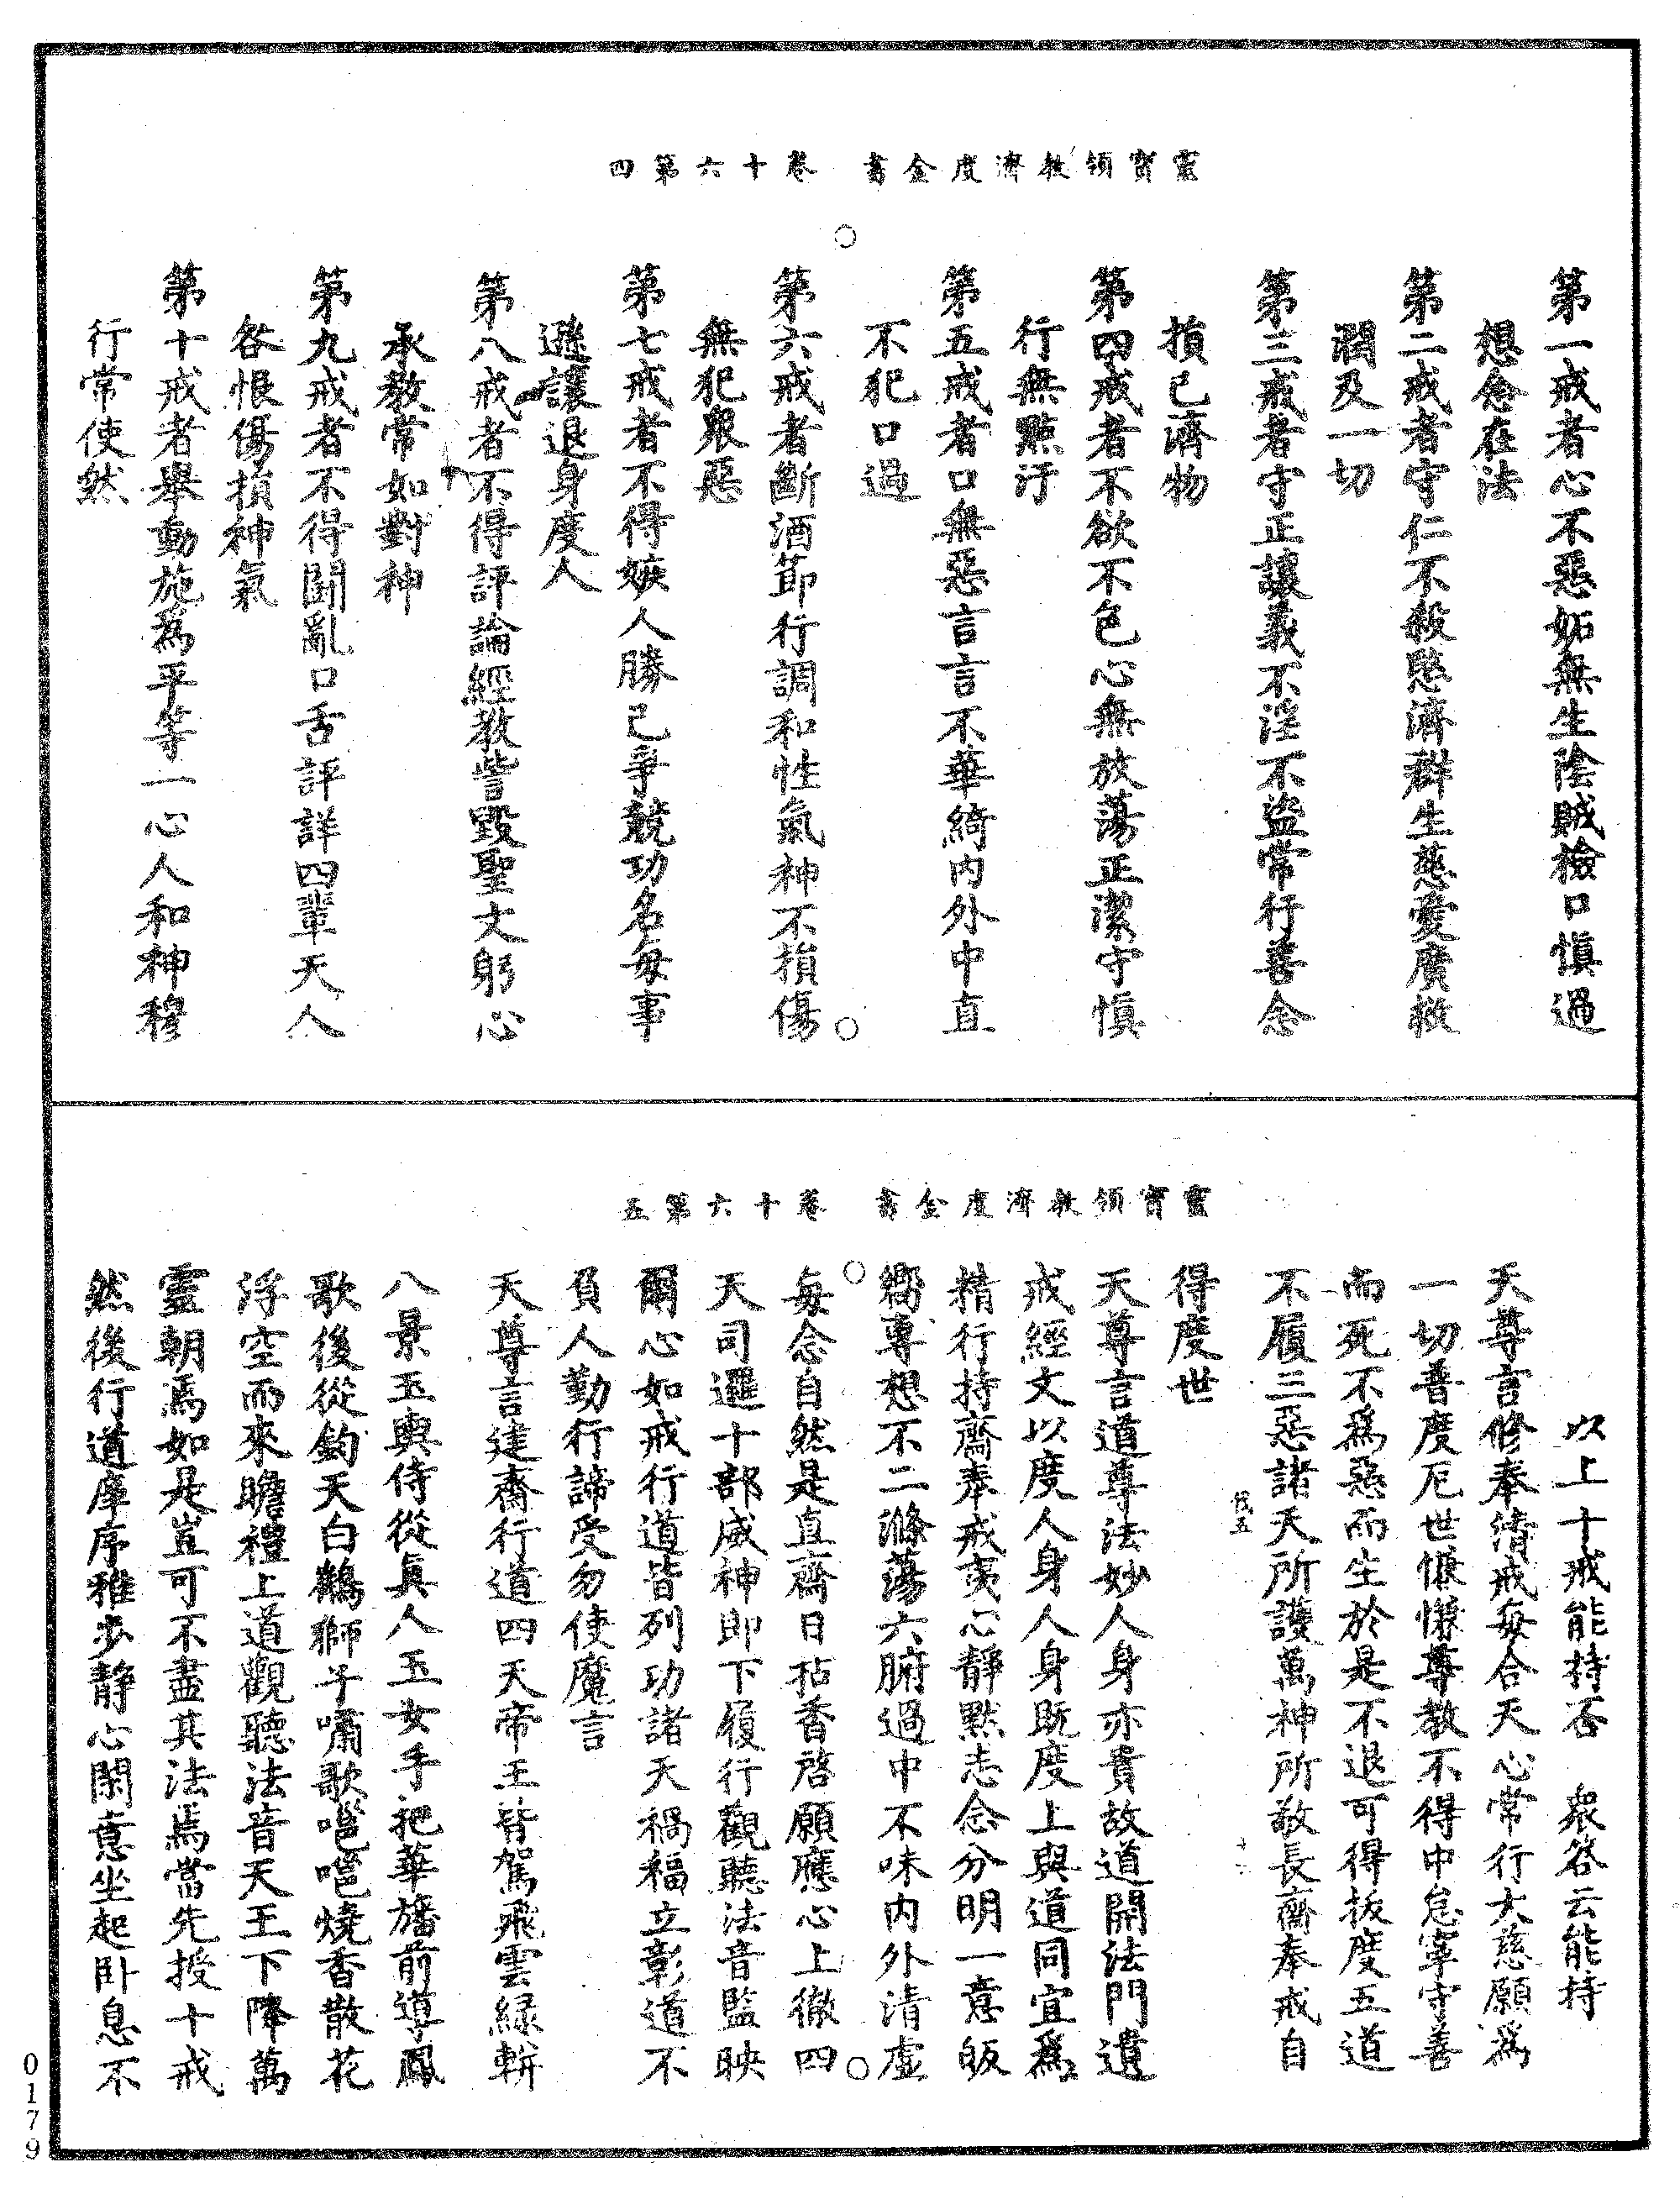 靈寶領教濟度金書　卷十六第四
第一戒者心不惡妬無生陰賊檢口慎過
想念在法
第二戒者守仁不殺愍濟群生慈愛廣救
潤及一切
第三戒者守正讓義不淫不盜常行善念
損己濟物
第四戒者不欲不色心無放蕩正潔守慎
行無點汙
第五戒者口無惡言言不華綺内外中直
不犯口過
第六戒者斷酒節行調和性氣神不損傷
無犯眾惡
第七戒者不得嫉人勝己爭競功名每事
遜讓退身度人
第八戒者不得評論經教訾毀聖文躬心
承教常如對神
第九戒者不得鬪亂口舌評詳四輩天人
咎恨傷損神氣
第十戒者舉動施為平等一心人和神穆
行常使然
靈寶領教濟度金書　卷十六第五
以上十戒能持否　眾答云能持
天尊言修奉清戒每合天心常行大慈願為
一切普度厄世慊慊尊教不得中怠寧守善
而死不為惡而生於是不退可得拔度五道
不履三惡諸天所護萬神所敬長齋奉戒自
得度世
天尊言道尊法妙人身亦貴故道開法門遺
戒經文以度人身人身既度上與道同宜為
精行持齋奉戒夷心靜默志念分明一意皈
嚮專想不二滌蕩六腑過中不味内外清虛
每念自然是直齋日拈香啓願應心上徹四
天司邏十部威神即下履行觀聽法音監映
爾心如戒行道皆列功諸天禍福立彰道不
負人勤行諦受勿使魔言
天尊言建齋行道四天帝王皆駕飛雲緑軿
八景玉輿侍從真人玉女手把華旛前導鳳
歌後從鈞天白鶴獅子嘯歌嗈嗈燒香散花
浮空而來瞻禮上道觀聽法音天王下降萬
靈朝焉如是豈可不盡其法焉當先授十戒
然後行道庠序雅步靜心閑意坐起卧息不
0179